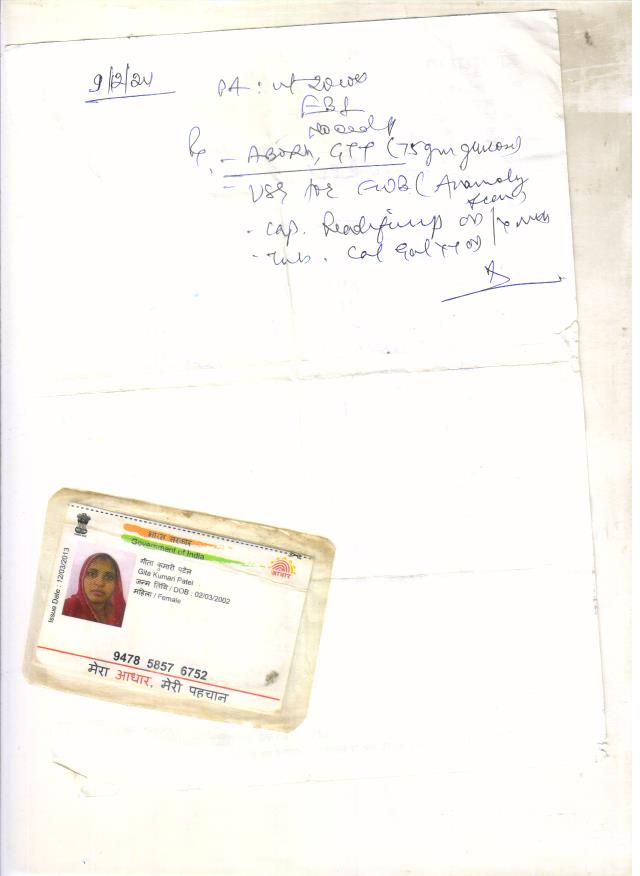 9/12/24
PA: ut 20 wks
FBS
Rx,
- ABORh, GTT (75gm glucose)
- USG for FWB (Anomaly
Scan)
- Cap. OD
- Tab. Cal OD
भारत सरकार
Government of India
Issue Date : 12/03/2013
गीता कुमारी पटेल
Gita Kumari Patel
जन्म तिथि / DOB : 02/03/2002
महिला / Female
आधार
9478 5857 6752
मेरा आधार, मेरी पहचान